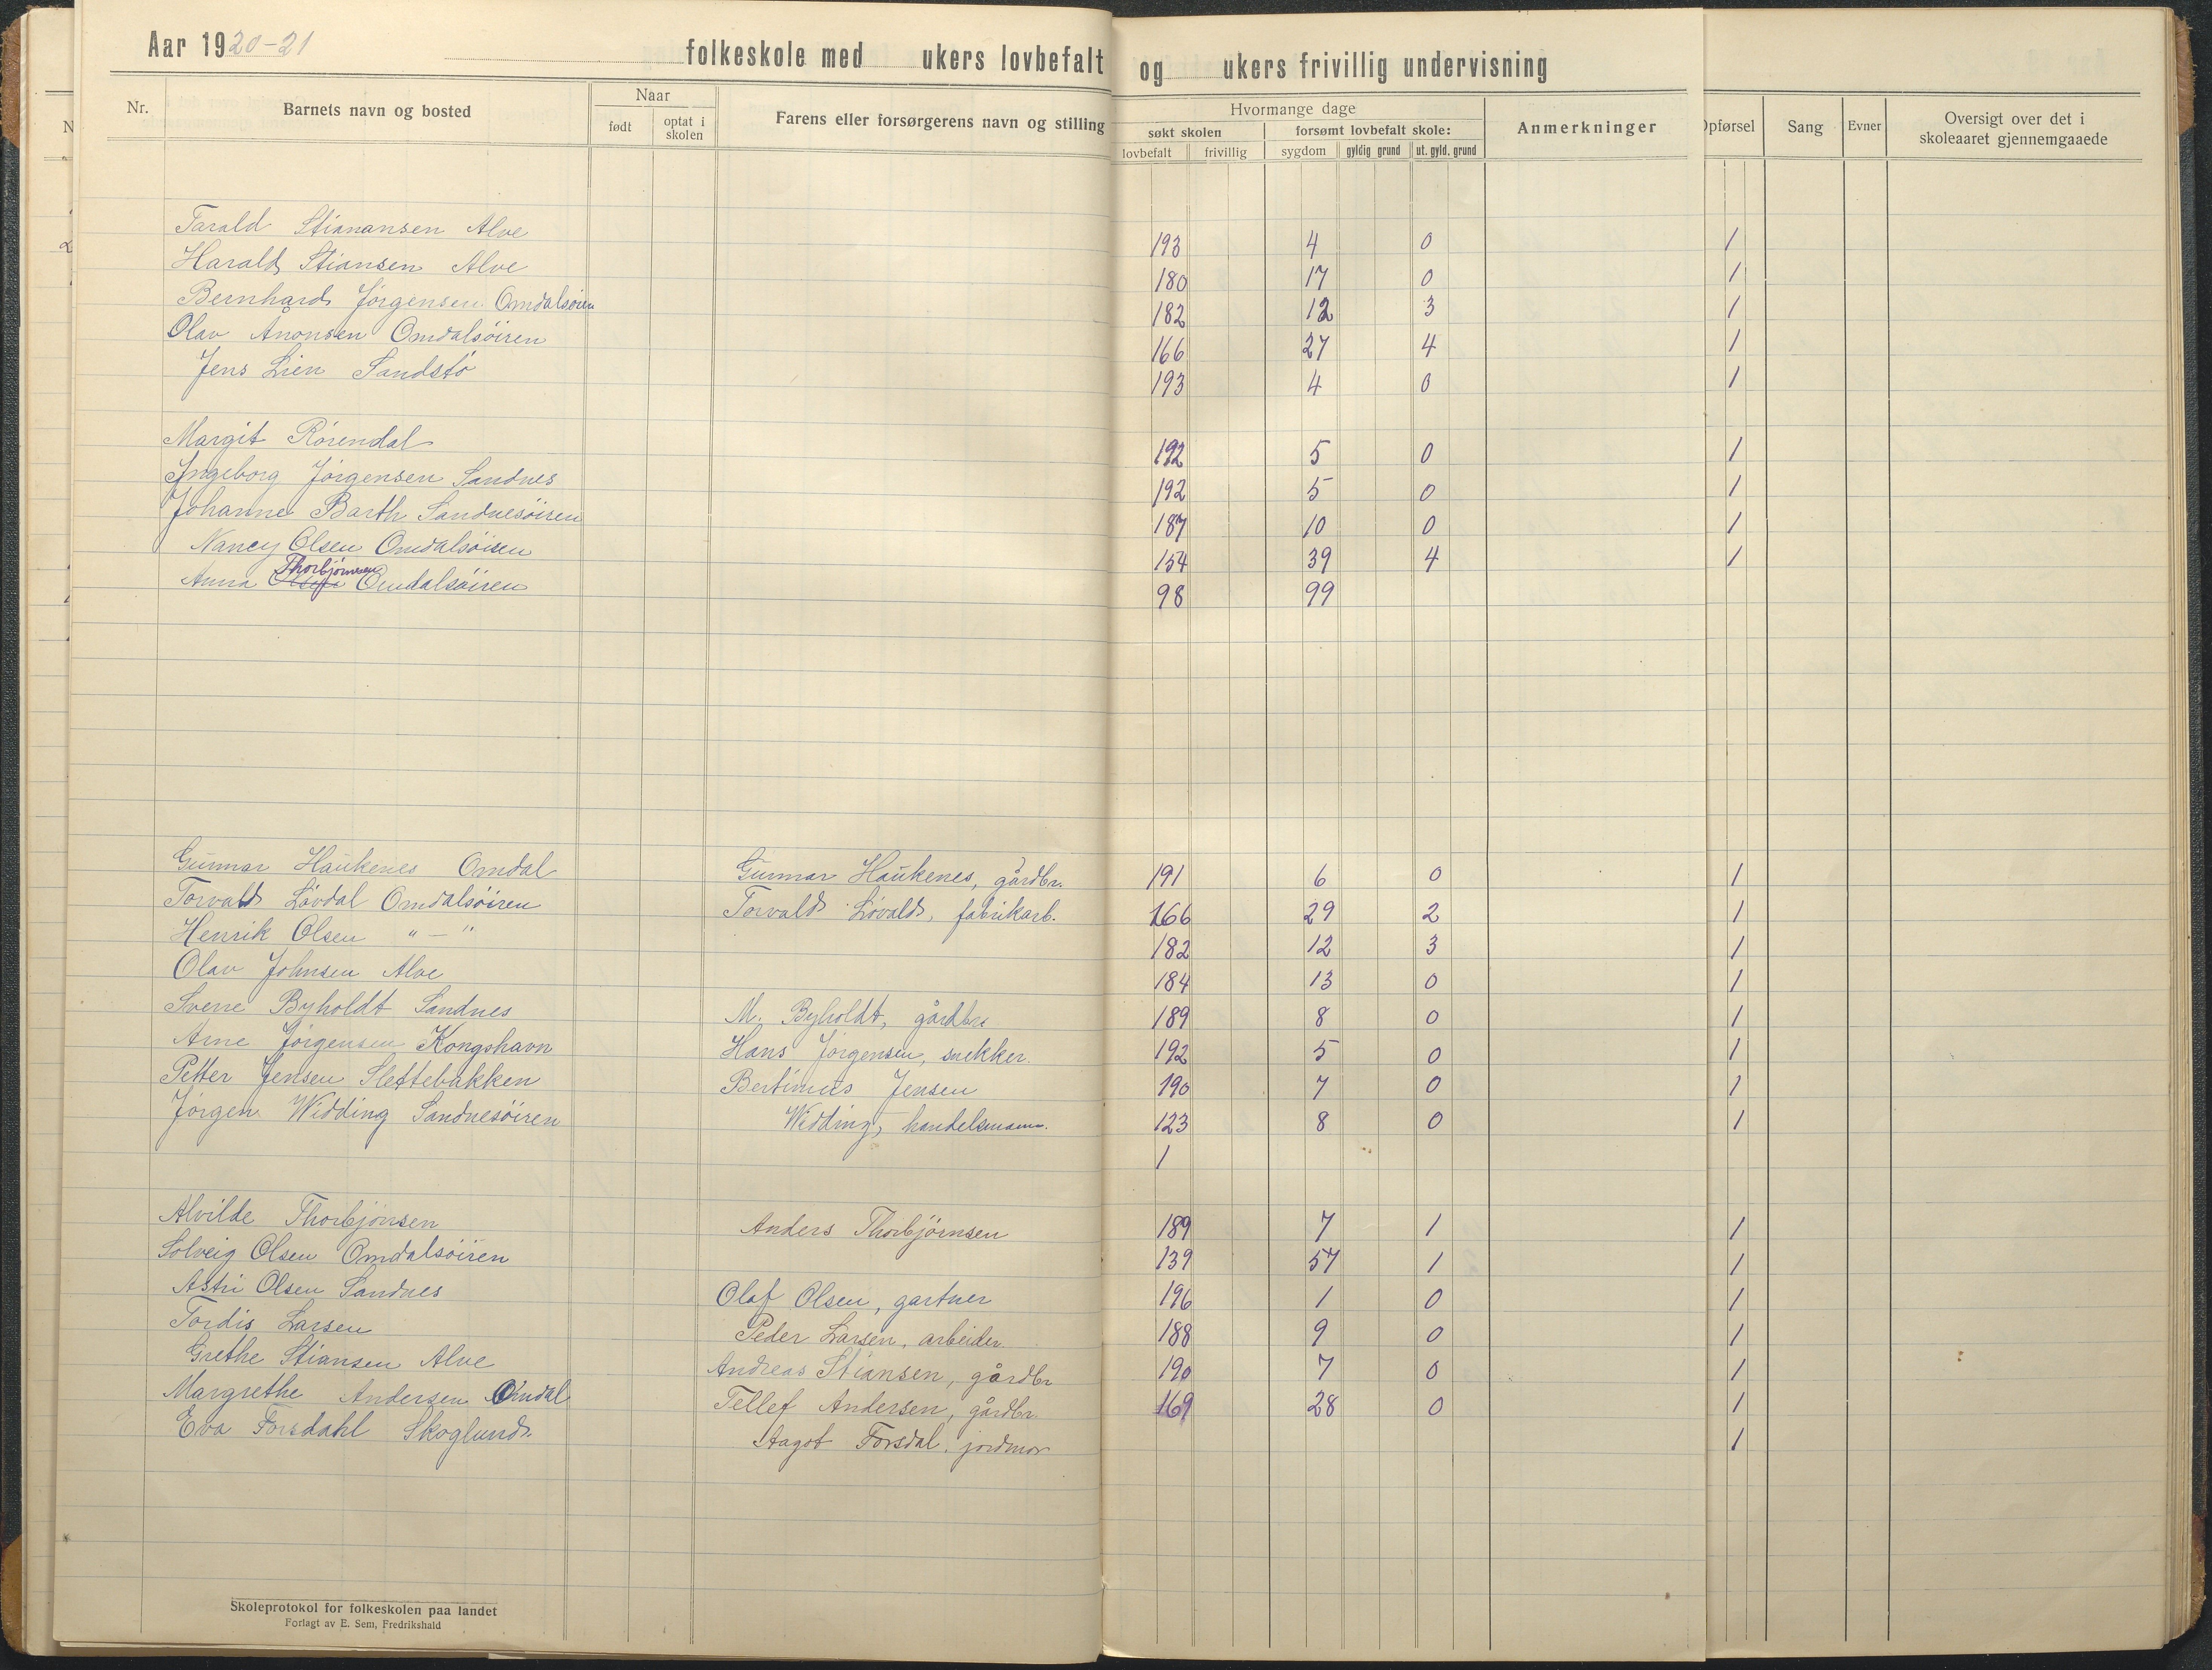 Aar 1920-21 folkeskole med ukers lovbefalt og ukers frivillig undervisning
Nr. Barnets navn og bosted Naar født optat i skolen Farens eller forsørgerens navn og stilling Hvormange dage søkt skolen lovbefalt frivillig forsømt lovbefalt skole: sygdom gyldig grund ut. gyld. grund Anmerkninger Opførsel Sang Evner Oversigt over det i skoleaaret gjennemgaaede
Tarald Stianansen Alve 193 4 0 1
Harald Stiansen Alve 180 17 0 1
Bernhard Jörgensen Omdalsöiren 182 12 3 1
Olav Anonsen Omdalsöiren 166 27 4 1
Jens Lien Sandstö 193 4 0 1
Margit Rörendal 192 5 0 1
Ingeborg Jörgensen Sandnes 192 5 0 1
Johanne Barth Sandnesöiren 187 10 0 1
Nancy Olsen Omdalsöiren 154 39 4 1
Anna Thorbjörnsen Omdalsöiren 98 99
Gunnar Haukenes Omdal Gunnar Haukenes, gårdbr. 191 6 0 1
Torvald Lövdal Omdalsöiren Torvald Lövald, fabrikarb. 166 29 2 1
Henrik Olsen " — " 182 12 3 1
Olav Johnsen Alve 184 13 0 1
Sverre Byholdt Sandnes M. Byholdt, gårdbr 189 8 0 1
Arne Jörgensen Kongshavn Hans Jörgensen, snekker. 192 5 0 1
Petter Jensen Slettebakken Bertinius Jensen 190 7 0 1
Jörgen Widding Sandnesöiren Widding, handelsmann. 123 8 0 1
1
Alvilde Thorbjörnsen Anders Thorbjörnsen 189 7 1 1
Solveig Olsen Omdalsöiren 139 57 1 1
Astri Olsen Sandnes Olaf Olsen, gartner 196 1 0 1
Tordis Larsen Peder Larsen, arbeider. 188 9 0 1
Grethe Stiansen Alve Andreas Stiansen, gårdbr 190 7 0 1
Margrethe Andersen Omdal Tellef Andersen, gårdbr. 169 28 0 1
Eva Forsdahl Skoglund. Aagot Forsdal, jordmor 1
Skoleprotokol for folkeskolen paa landet
Forlagt av E. Sem, Fredrikshald